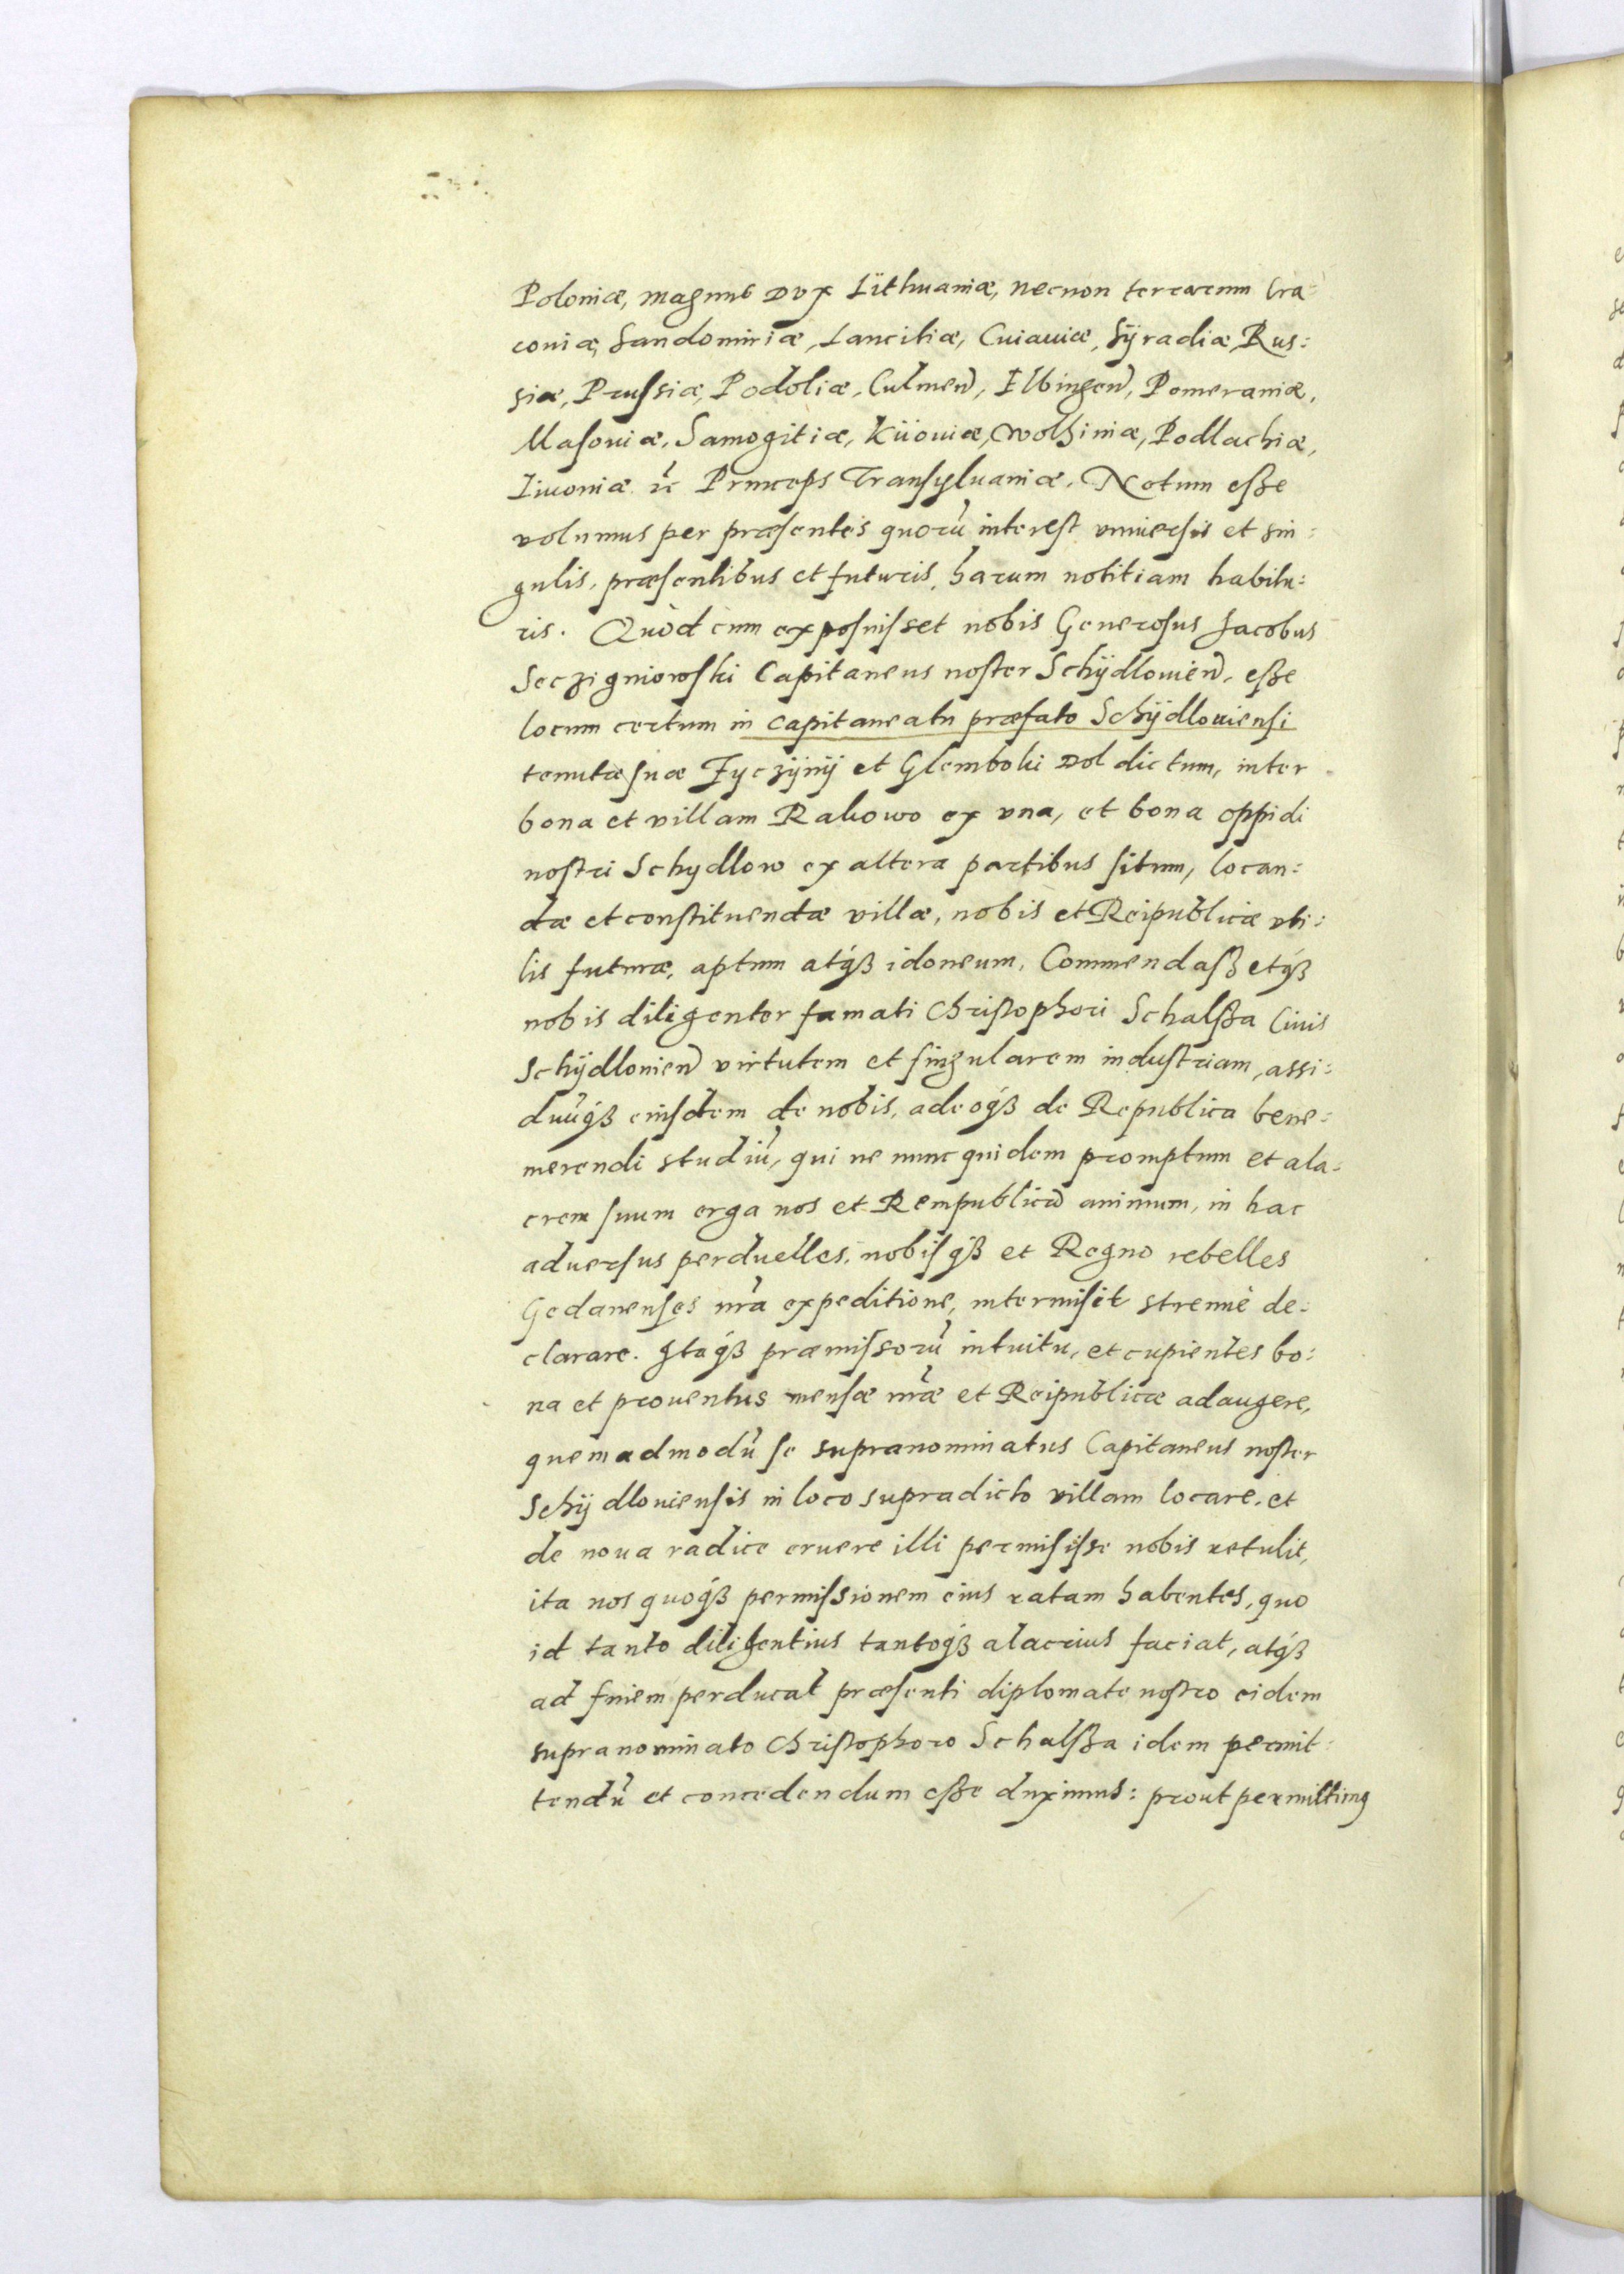 Poloniæ, magnus Dux Lithuaniæ, necnon terrarum Cra=
coviæ, Sandomiriæ, Lanciliæ, Cuiaviæ, Sÿradiæ, Rus:
siæ, Prussiæ, Podoliæ, Culmeñ, Elbingeñ, Pomeraniæ,
Masoviæ, Samogitiæ, Kiioviæ, Wolhiniæ, Podlachiæ,
Livoniæ &c Princeps Transylvaniæ. Notum esse
volumus per præsentes quorũ interest universis et sin:
gulis, præsentibus et futuris, harum notitiam habitu:
ris. Quòd cum exposuisset nobis Generosus Jacobus
Seczigniowski Capitaneus noster Schÿdlovieñ, esse
locum certum in capitaneatu præfato Schÿdloviensi
tenutæ suæ Fyczÿnÿ et Glemboki Dol dictum, inter
bona et villam Rakowo ex una, et bona oppidi
nostri Schydlow ex altera partibus situm, locan:
dæ et constituendæ villæ, nobis et Reipublicæ uti:
lis futuræ, aptum atq́ꝫ idoneum. Commendassetq́ꝫ
nobis diligenter famati Christophori Schalssa Civis
Schÿdlovieñ virtutem et singularem industriam, assi:
duũq́ꝫ eiusdem de nobis, adeoq́ꝫ de Republica bene:
merendi studiũ, qui ne nunc quidem promptum et ala:
crem suum erga nos et Rempublicã animum, in hac
adversus perduelles, nobisq́ꝫ et Regno rebelles
Gedanenses nr̃a expeditione, intermisit strenuè de:
clarare. Itaq́ꝫ præmissorũ intuitu, et cupientes bo:
na et proventus mensæ nr̃æ et Reipublicæ adaugere,
quemadmodũ se supranominatus Capitaneus noster
Schÿdloviensis in loco supradicto villam locare, et
de nova radice eruere illi permisisse nobis retulit,
ita nos quoq́ꝫ permissionem eius ratam habentes, quo
id tanto diligentius tantoq́ꝫ alacrius faciat, atq́ꝫ
ad finem perducat præsenti diplomate nostro eidem
supranominato Christophoro Schalssa idem permit:
tendũ et concedendum esse duximus: prout permittimꝰ